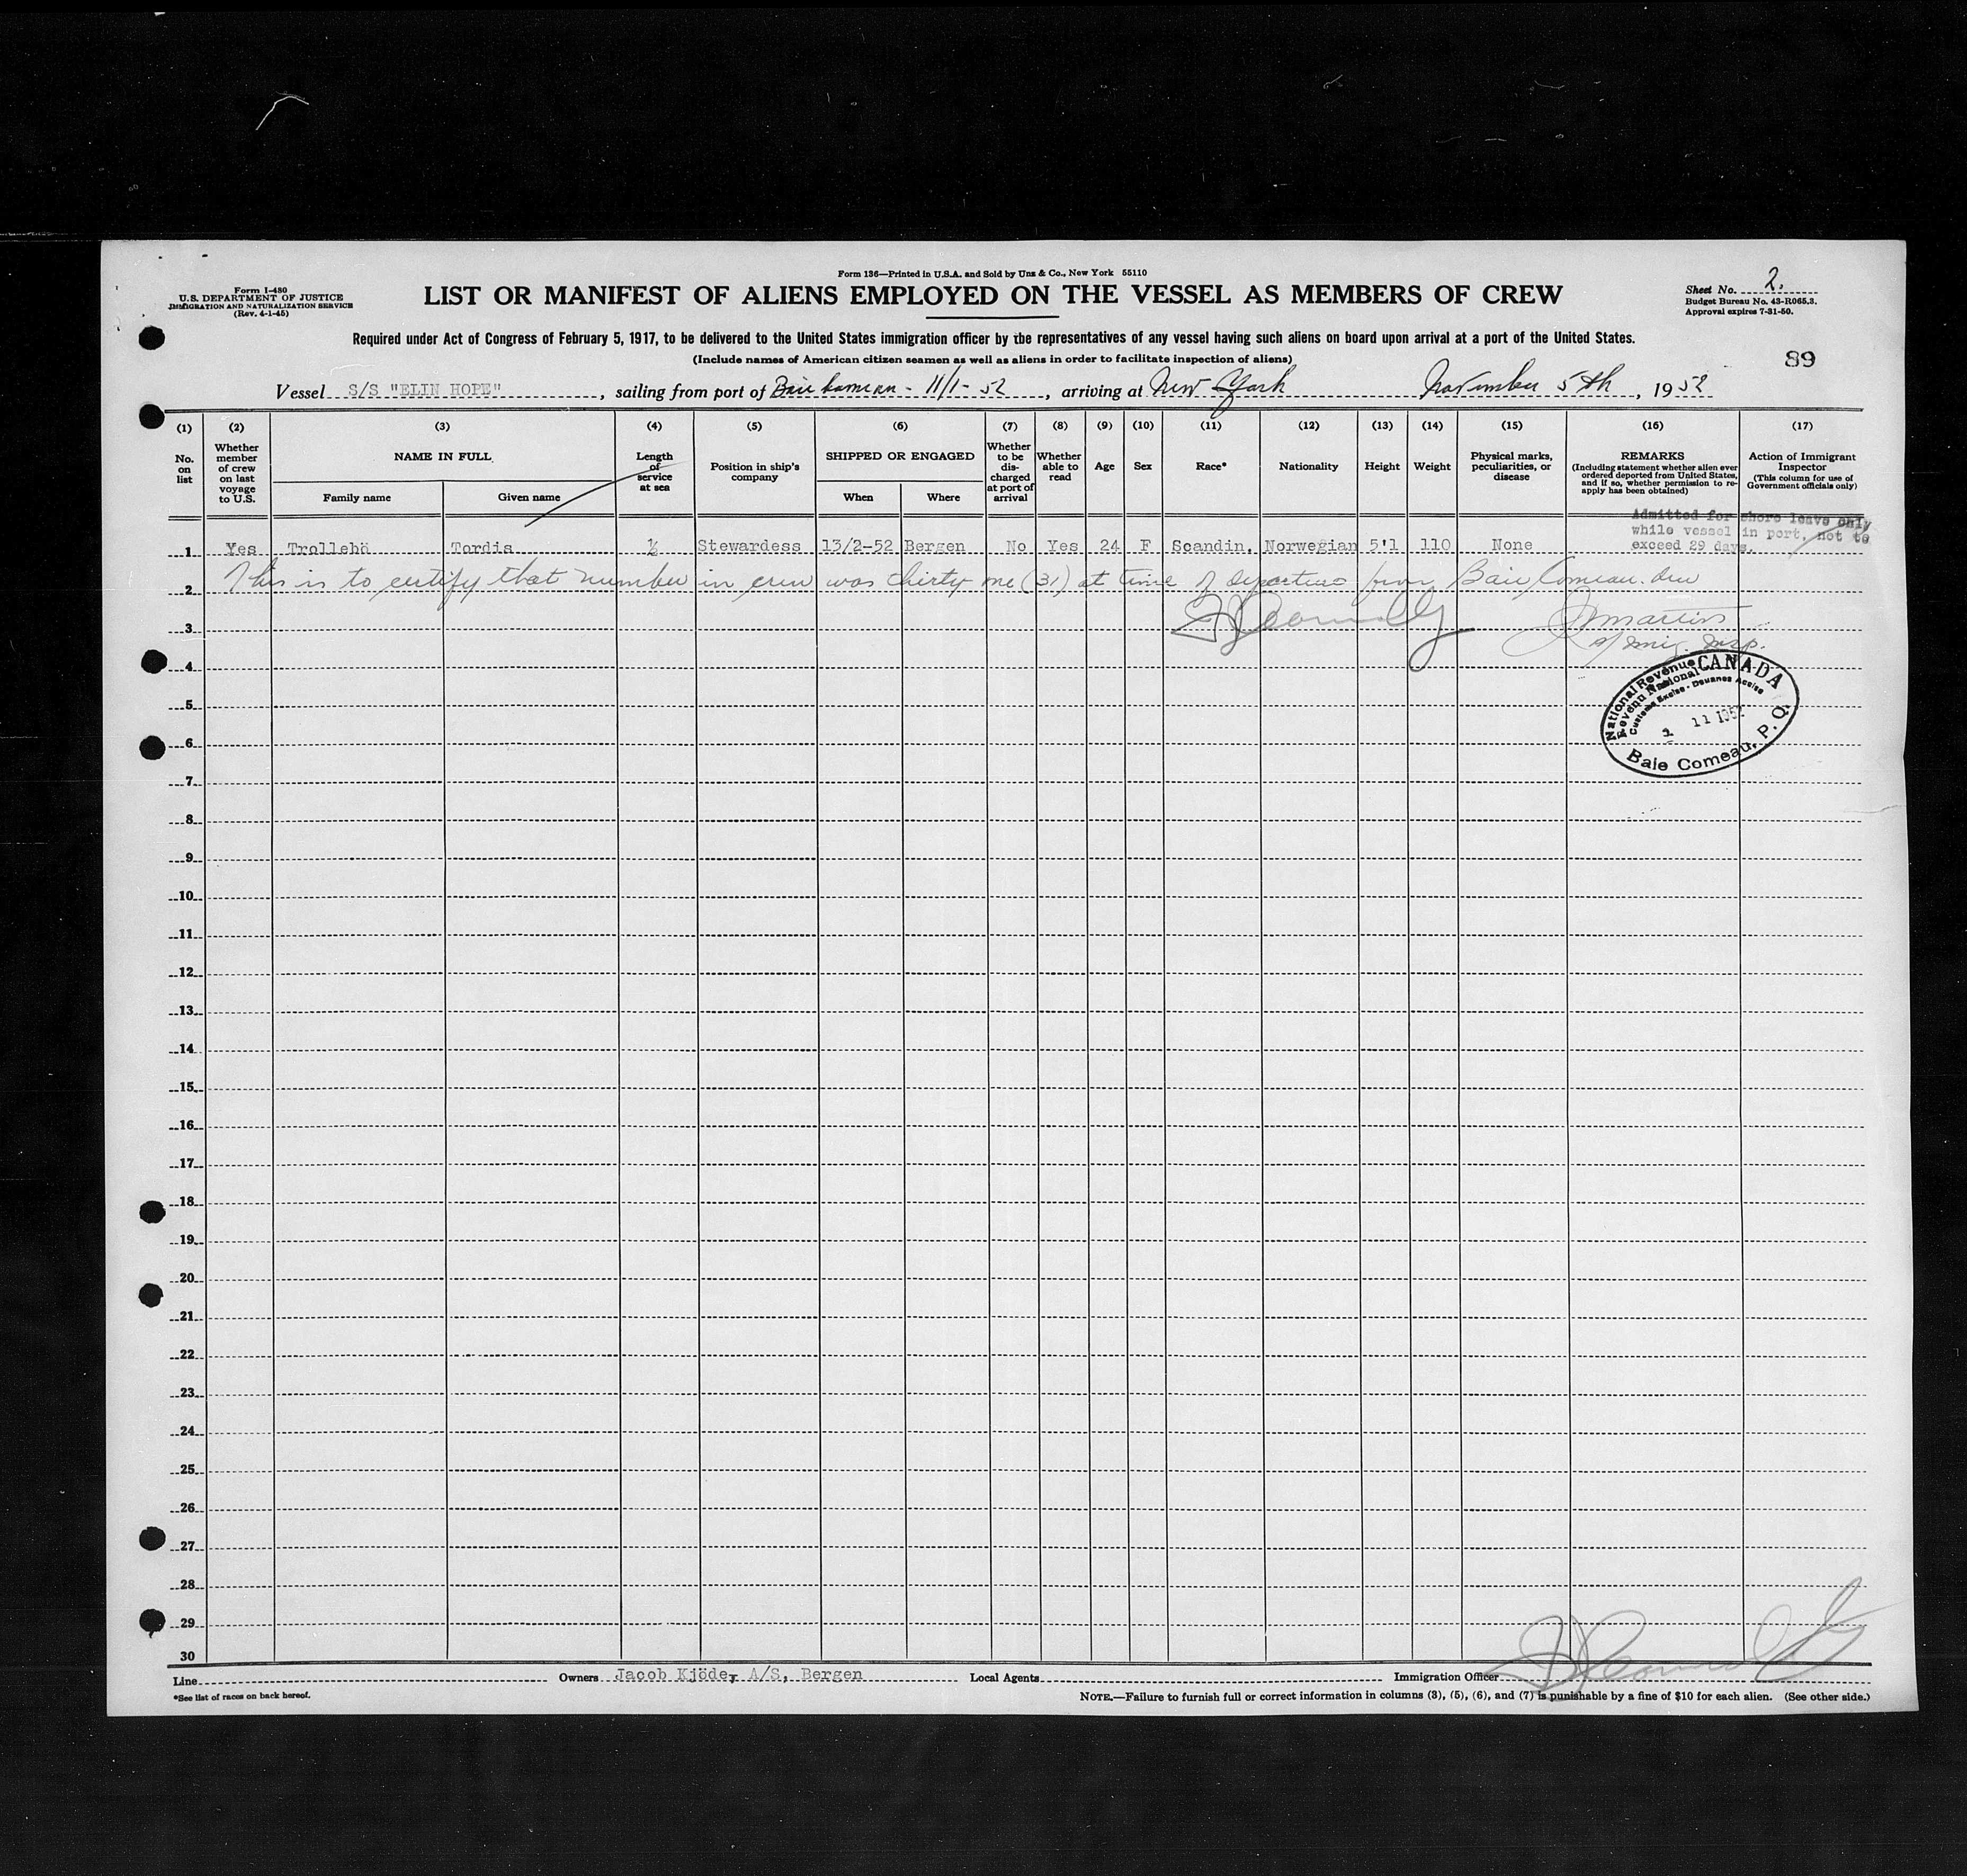 Form 136—Printed in U.S.A. and Sold by Unz & Co., New York 55110
Form I-480
U.S. DEPARTMENT OF JUSTICE
IMMIGRATION AND NATURALIZATION SERVICE
(Rev. 4-1-45)
LIST OR MANIFEST OF ALIENS EMPLOYED ON THE VESSEL AS MEMBERS OF CREW
Sheet No. 2.
Budget Bureau No. 43-R065.3.
Approval expires 7-31-50.
Required under Act of Congress of February 5, 1917, to be delivered to the United States immigration officer by the representatives of any vessel having such aliens on board upon arrival at a port of the United States.
(Include names of American citizen seamen as well as aliens in order to facilitate inspection of aliens)
89
Vessel S/S "ELIN HOPE", sailing from port of Baie Comeau - 11/1-52, arriving at New York November 5th, 1952
(1) (2) (3) (4) (5) (6) (7) (8) (9) (10) (11) (12) (13) (14) (15) (16) (17)
No. on list
Whether member of crew on last voyage to U.S.
NAME IN FULL
Family name
Given name
Length of service at sea
Position in ship's company
SHIPPED OR ENGAGED
When
Where
Whether to be discharged at port of arrival
Whether able to read
Age
Sex
Race*
Nationality
Height
Weight
Physical marks, peculiarities, or disease
REMARKS
(Including statement whether alien ever ordered deported from United States, and if so, whether permission to reapply has been obtained)
Action of Immigrant Inspector
(This column for use of Government officials only)
Admitted for shore leave only
while vessel in port, not to
exceed 29 days.
1 Yes Trollebö Tordis ½ Stewardess 13/2-52 Bergen No Yes 24 F Scandin. Norwegian 5'1 110 None
This is to certify that number in crew was thirty one (31) at time of departure from Baie Comeau. Que
2
3
J Martin
Imig. Insp.
4
National Revenue CANADA
Revenu National
Customs Excise - Douanes Accise
1 11 1952
Baie Comeau, P. Q.
5
6
7
8
9
10
11
12
13
14
15
16
17
18
19
20
21
22
23
24
25
26
27
28
29
30
Line Owners Jacob Kjöde, A/S, Bergen Local Agents Immigration Officer
*See list of races on back hereof.
NOTE.—Failure to furnish full or correct information in columns (3), (5), (6), and (7) is punishable by a fine of $10 for each alien. (See other side.)